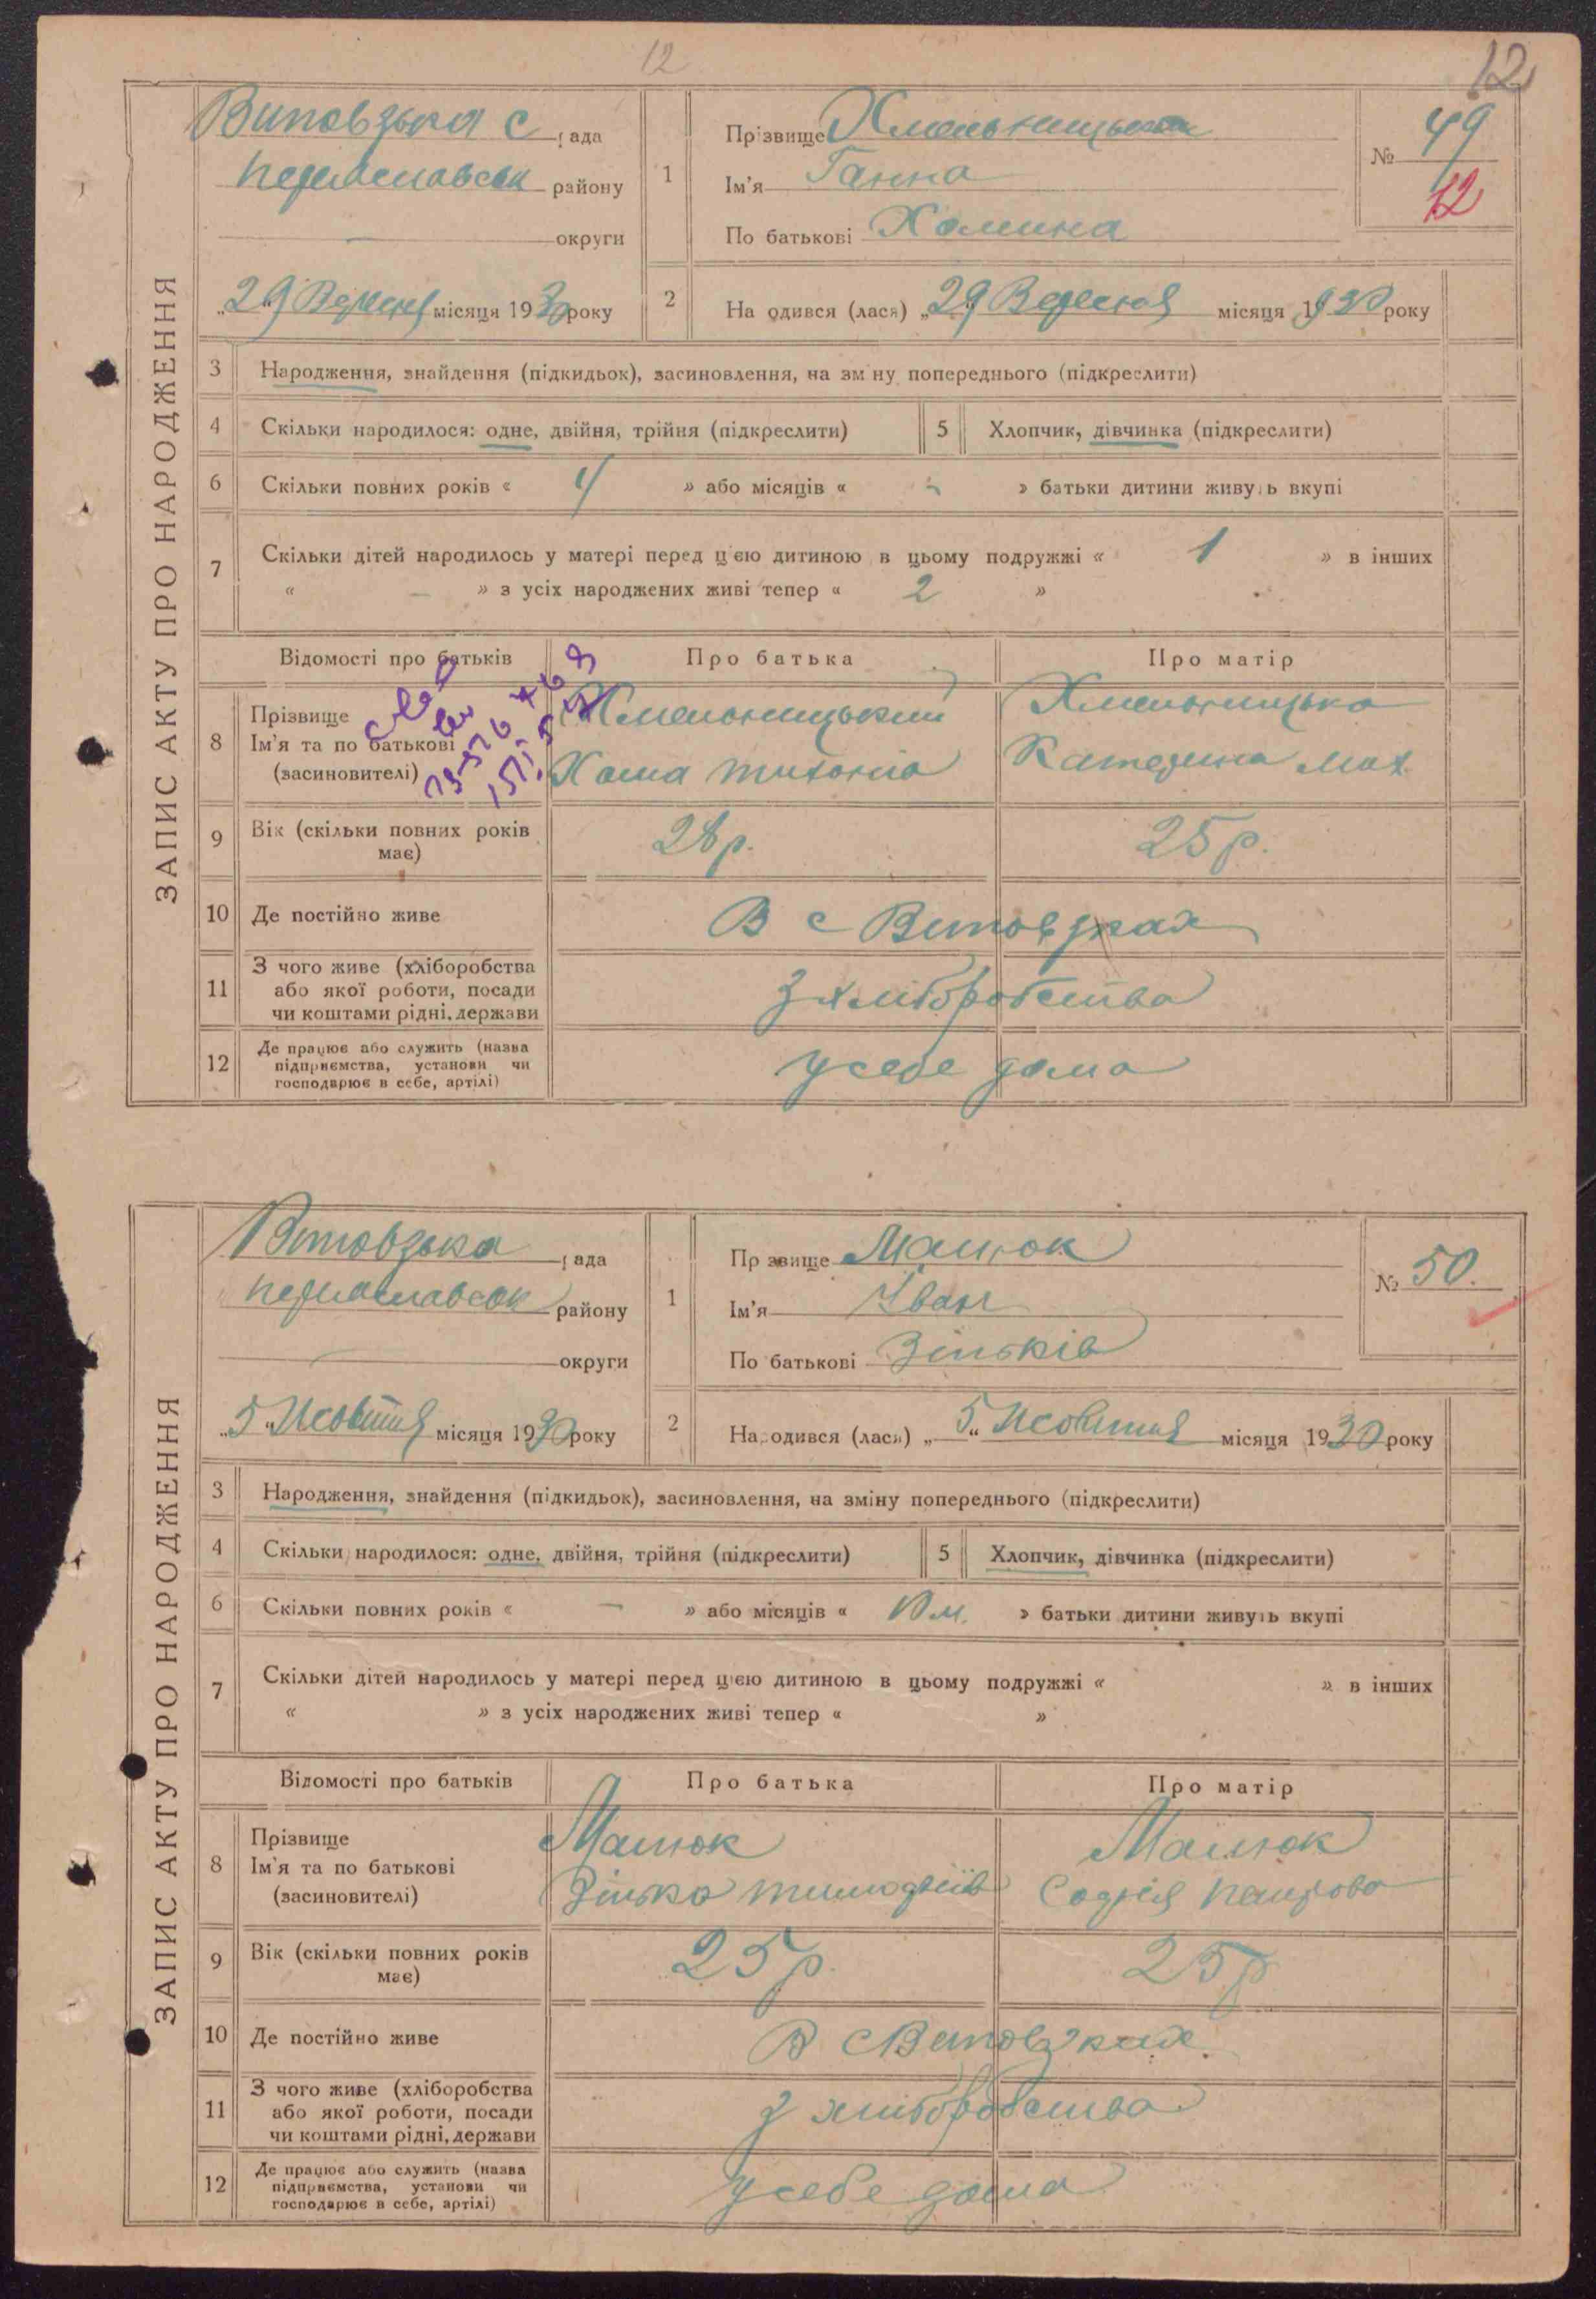 12
12
ЗАПИС АКТУ ПРО НАРОДЖЕННЯ
Витовзька с рада
Переяславськ району
— округи
„29 Вересня місяця 1930 року
1 Прізвище Хмельницька
Ім'я Ганна
По батькові Хомина
№ 49
12
2 Народився (лася) „29 Вересня місяця 1930 року
3 Народження, знайдення (підкидьок), засиновлення, на зміну попереднього (підкреслити)
4 Скільки народилося: одне, двійня, трійня (підкреслити) 5 Хлопчик, дівчинка (підкреслити)
6 Скільки повних років « 4 » або місяців « - » батьки дитини живуть вкупі
7 Скільки дітей народилось у матері перед цією дитиною в цьому подружжі « 1 » в інших
« — » з усіх народжених живі тепер « 2 »
Відомості про батьків Про батька Про матір
8 Прізвище Хмельницький Хмельницька
Ім'я та по батькові
(засиновителі) Хома Тихонів Катерина Мах.
9 Вік (скільки повних років має) 28 р. 25 р.
10 Де постійно живе В с Витовзках
11 З чого живе (хліборобства
або якої роботи, посади
чи коштами рідні, держави З хліборобства
12 Де працює або служить (назва
підприємства, установи чи
господарює в себе, артілі) У себе дома
ЗАПИС АКТУ ПРО НАРОДЖЕННЯ
Витовзька рада
Переяславськ району
— округи
„5" Жовтня місяця 1930 року
1 Прізвище Малюк
Ім'я Іван
По батькові Зіньків
№ 50.
2 Народився (лася) „5" Жовтня місяця 1930 року
3 Народження, знайдення (підкидьок), засиновлення, на зміну попереднього (підкреслити)
4 Скільки народилося: одне, двійня, трійня (підкреслити) 5 Хлопчик, дівчинка (підкреслити)
6 Скільки повних років « — » або місяців « м. » батьки дитини живуть вкупі
7 Скільки дітей народилось у матері перед цією дитиною в цьому подружжі « » в інших
« » з усіх народжених живі тепер « »
Відомості про батьків Про батька Про матір
8 Прізвище Малюк Малюк
Ім'я та по батькові
(засиновителі) Зінько Тимофіїв Софія
9 Вік (скільки повних років має) 25 р. 25 р
10 Де постійно живе В с Витовзках
11 З чого живе (хліборобства
або якої роботи, посади
чи коштами рідні, держави З хліборобства
12 Де працює або служить (назва
підприємства, установи чи
господарює в себе, артілі) У себе дома